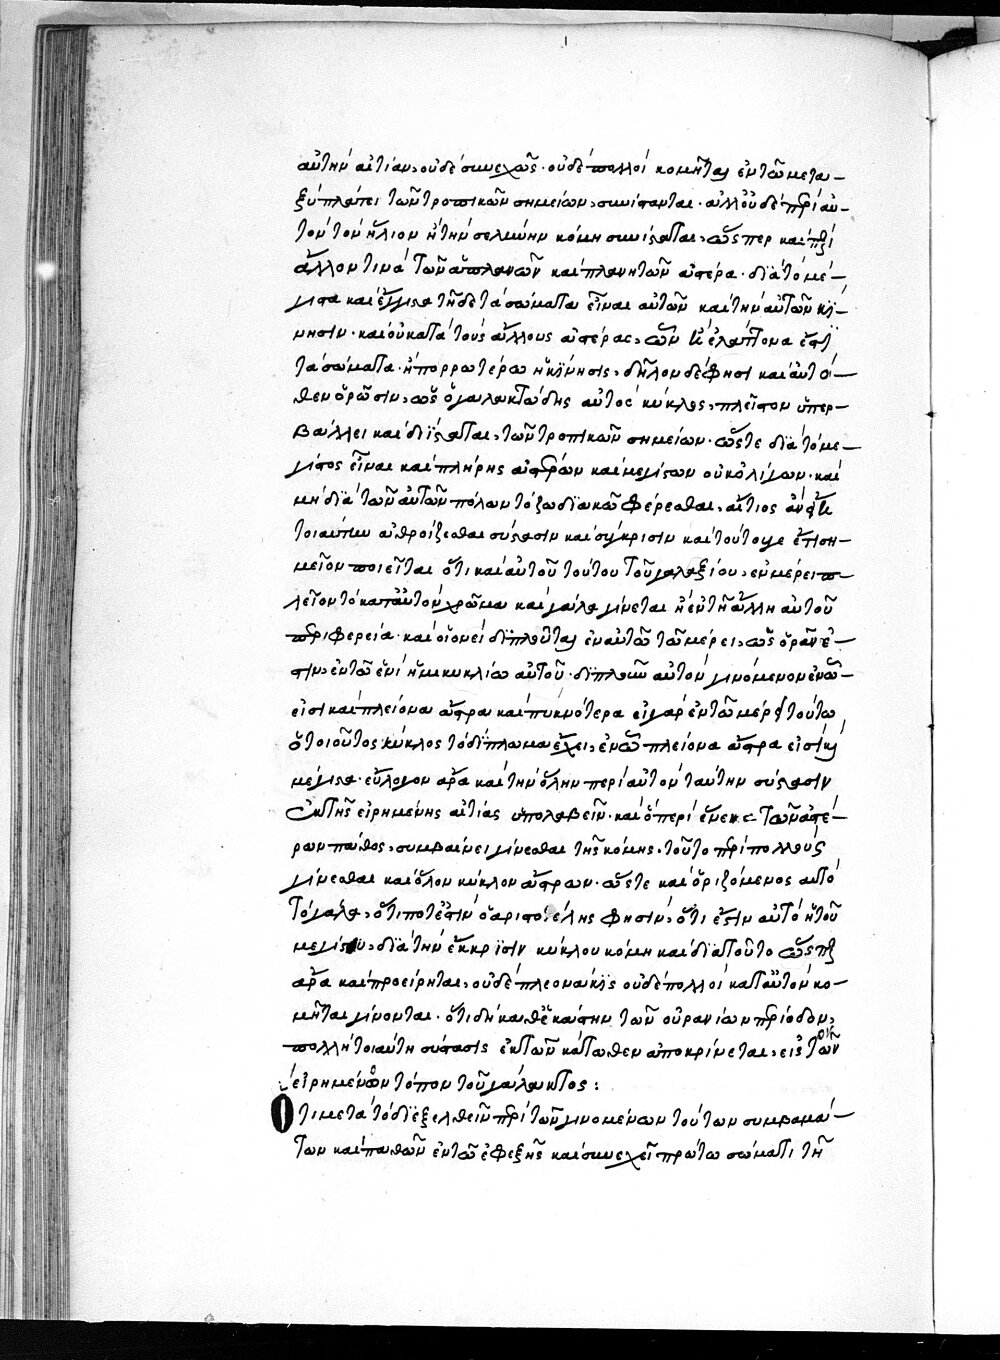 αὐτὴν αἰτίαν, οὐδὲ συνεχῶς· οὐδὲ πολλοὶ κομῆται ἐν τῶ μετα-
ξὺ πλάτει τῶν τροπικῶν σημείων, συνίστανται· ἀλλ' οὐδὲ περὶ αὐ-
τὸν τὸν ἥλιον ἢ τὴν σελήνην κόμη συνίσταται, ὥσπερ καὶ περὶ
ἄλλον τινὰ τῶν ἀπλανῶν καὶ πλανητῶν ἀστέρα· διὰ τὸ μέ-
γιστα καὶ ἔγγιστα τῆδε τὰ σώματα εἶναι αὐτῶν καὶ τὴν αὐτῶν κί-
νησιν· καὶ οὐ κατὰ τοὺς ἄλλους ἀστέρας, ὧν καὶ ἐλάττονα ἐστὶ
τὰ σώματα· ἢ πορρωτέρω ἡ κίνησις, δῆλον δέ φησι καὶ αὐτό-
θεν ὁρῶσιν, ὡς ὁ γαλακτώδης αὐτὸς κύκλος, πλεῖστον ὑπερ-
βάλλει καὶ διΐσταται, τῶν τροπικῶν σημείων· ὥστε διὰ τὸ με-
γίστος εἶναι καὶ πλήρης ἀστέρων καὶ μεγίστων οὐκ ὀλίγων· καὶ
μὴ διὰ τῶν αὐτῶν πόλων τῶ ζωδιακῶ φέρεσθαι, αἴτιος ἂν
τοιαύτην ἀθροίζεσθαι σύστασιν καὶ σύγκρισιν καὶ τούτου γε ἐπιση-
μεῖον ποιεῖται ὅτι καὶ αὐτοῦ τούτου τοῦ γαλαξίου, ἐν μέρει π-
λεῖον τὸ κατ' αὐτὸν χρῶμα καὶ γάλα γίνεται ἢ ἐν τῆ ἄλλη αὐτοῦ
περιφερεία· καὶ οἱονεὶ διπλοῦται ἐν αὐτῶ τῶ μέρει, ὡς ὁρᾶν ἐ-
στιν, ἐν τῶ ἑνὶ ἡμικυκλίω αὐτοῦ· διπλοῦν αὐτὸν γινόμενον ἐν ὧ-
εἰσι καὶ πλείονα ἄστρα καὶ πυκνότερα εἰ γὰρ ἐν τῶ μέρει τούτω
ὁ τοιοῦτος κύκλος τὸ δίπλωμα ἔχει, ἐν ὧ πλείονα ἄστρα εἰσὶ καὶ
μέγιστα· εὔλογον ἄρα καὶ τὴν ὅλην περὶ αὐτὸν ταύτην σύστασιν
ἐκ τῆς εἰρημένης αἰτίας ὑπολαβεῖν· καὶ ὅπερ ἑνὸς τῶν ἀστέ-
ρων πάθος, συμβαίνει γίνεσθαι τῆς κόμης, τοῦτο περὶ πολλοὺς
γίνεσθαι καὶ ὅλον κύκλον ἄστρων· ὥστε καὶ ὁριζόμενος αὐτὸ
τὸ γάλα, ὅτι ποτὲ ἐστὶν ὁ ἀριστοτέλης φησὶν, ὅτι ἐστὶν αὐτὸ ἡ τοῦ
μεγίστου, διὰ τὴν ἔκκρισιν κύκλου κόμη καὶ διὰ τοῦτο ὥσπερ
ἄρα καὶ προείρηται, οὐδὲ πλεονάκις οὐδὲ πολλοὶ κατ' αὐτὸν κο-
μῆται γίνονται· ὅτι δὴ καθ' ἑκάστην τῶν οὐρανίων περίοδον,
πολλὴ τοιαύτη σύστασις ἐκ τῶν κάτωθεν ἀποκρίνεται, εἰς τὸν
εἰρημένον τόπον τοῦ γάλακτος:
Ὅτι μετὰ τὸ διεξελθεῖν περὶ τῶν γινομένων τούτων συμβαμά-
των καὶ παθῶν ἐν τῶ ἐφεξῆς καὶ συνεχεῖ πρώτω σώματι τῆ